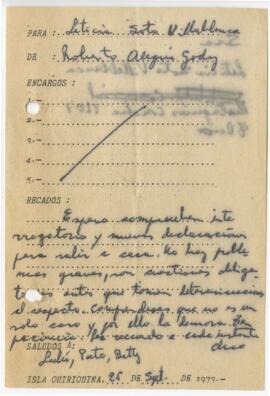 PARA : Leticia Soto V. Mablanca
DE : Roberto Alegría Godoy
ENCARGOS :
1.-
2.-
3.-
4.-
5.-
RECADOS :
Espera comprueben inte
rrogatorio y nuevas declaraciones
para salir a casa. No hay proble
mas graves, son cuestiones obliga
torias antes que tomen determinaciones
al respecto. Comprendeme que no es un
solo caso y por ello la demora. Ten
paciencia. Las recuerdo a cada instante
SALUDOS A :
Lulú, Pato, Betty
ISLA QUIRIQUINA, 25 de Sept. DE 1973.-